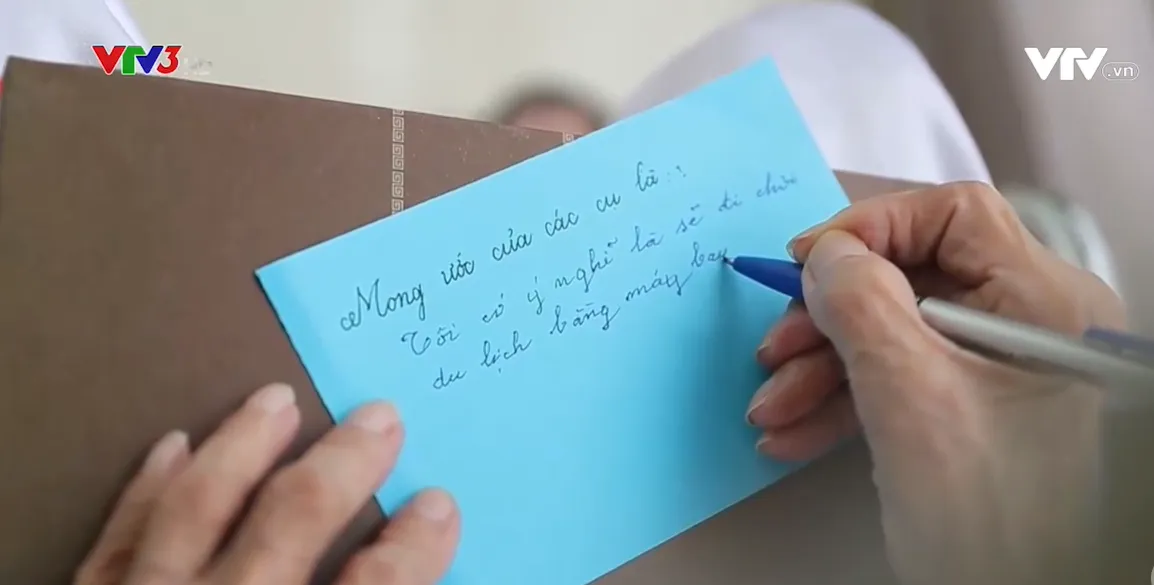 VTV3
VTV.vn
Mong ước của các cụ là:
Tôi có ý nghĩ là sẽ đi chơi
du lịch bằng máy bay